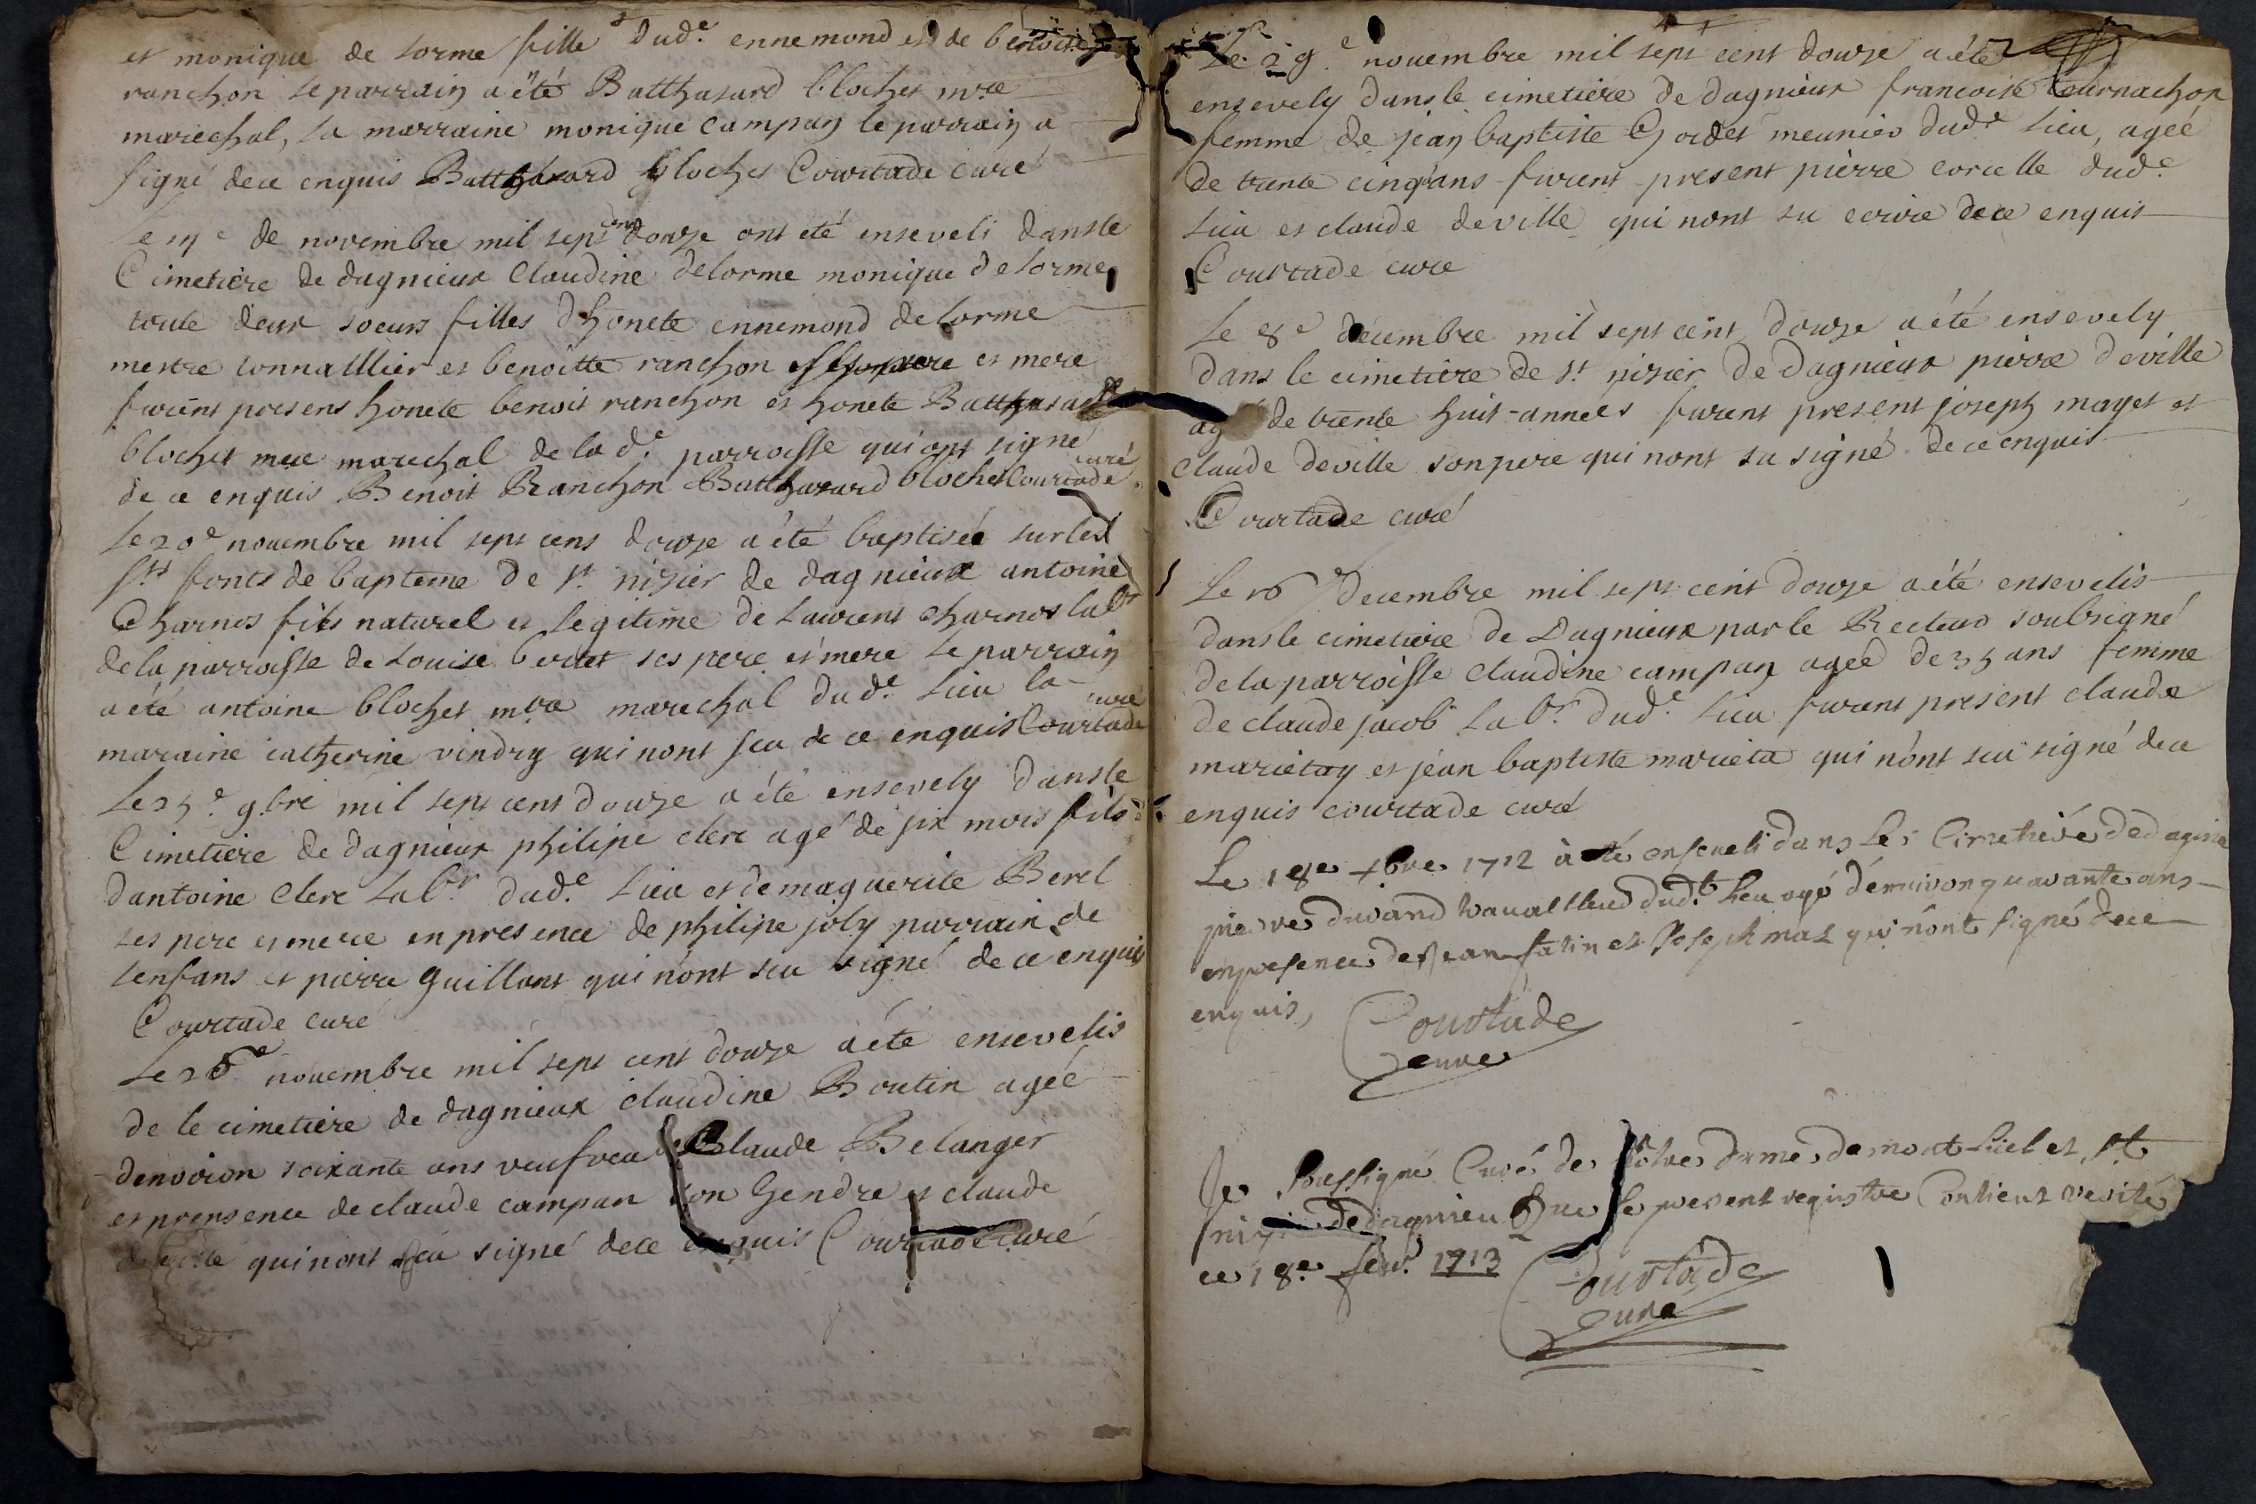 et monique de lorme fille dud.e ennemond et de benoite
ranchon le parrain a été Batthasard blochet mre
marechal, la marraine monique campan le parrain a
signé de ce enquis Batthasard blochet Courtade curé
de novembre mil sept cent douze ont été enseveli dans le
Cimetière de dagnieux Claudine delorme monique delorme
toute deux soeurs filles d'honete ennemond delorme
mestre tonnallier et benoitte ranchon pere et mere
furent presens honete benoit ranchon et honete Batthasard
blochet mre marechal de la d.e parroisse qui ont signé
de ce enquis Benoit Ranchon Batthasard blochet Courtade curé
Le 20e novembre mil sept cens douze a été baptisée sur les
sts fonts de bapteme de st nizier de dagnieux antoine
Charnos fils naturel et legitime de laurens charnos labr
de la parroisse de louise ses pere et mere le parrain
a été antoine blochet mre marechal dud.e lieu la
maraine catherine vindry qui nont sçu de ce enquis Courtade curé
Le 25e 9.bre mil sept cent douze a été ensevely dans le
Cimetiere de dagnieux philipe clerc agé de six mois fils
dantoine Clerc labr. dud.e lieu et de maguerite Berel
ses pere et mere en presence de philipe joly parrain de
lenfans et pierre guillont qui n'ont sçu signé de ce enquis
Courtade curé
Le 26e novembre mil sept cent douze a été ensevelis
de le cimetiere de dagnieux claudine Boutin agée
denviron soixante ans veufve Claude Belanger
et prensence de claude campan son Gendre et claude
deville qui nont sçu signé de ce enquis Courtade curé
Le 29e novembre mil sept cent douze a été
ensevely dans le cimetiere de dagnieux francoise tournachon
femme de jean baptiste Gordet meunier dud.e lieu, agée
de trente cinq ans furent present pierre corcelle dud.e
lieu et claude deville qui nont su ecrire de ce enquis
Courtade curé
Le 8e decembre mil sept cent douze a été ensevely
dans le cimetiere de st nizier de Dagnieux pierre deville
agé de trente huit années furent present joseph mayet et
Claude deville son pere qui nont su signé de ce enquis
Courtade curé
Le 16e decembre mil sept cent douze a été ensevelis
dans le cimetiere de Dagnieux par le Recteur soubsigné
de la parroisse Claudine campan agée de 35 ans femme
de claude jacob labr. dud.e lieu furent present claude
marietay et jean baptiste marieta qui n'ont sçu signé de ce
enquis courtade curé
Le 18e xbre 1712 à été enseveli dans le Cimetiere de dagnieu
pierre durand travailleur dud.t lieu agé d'environ quarante ans
en presence de jean fatin et Joseph mas qui n'ont signé de ce
enquis,
Courtade
Cure
Je soussigné Curé de Notre dame de mont-luel et st
nizier de dagnieu que le present registre Contient verité
ce 18.e fevr. 1713
Courtade
Curé